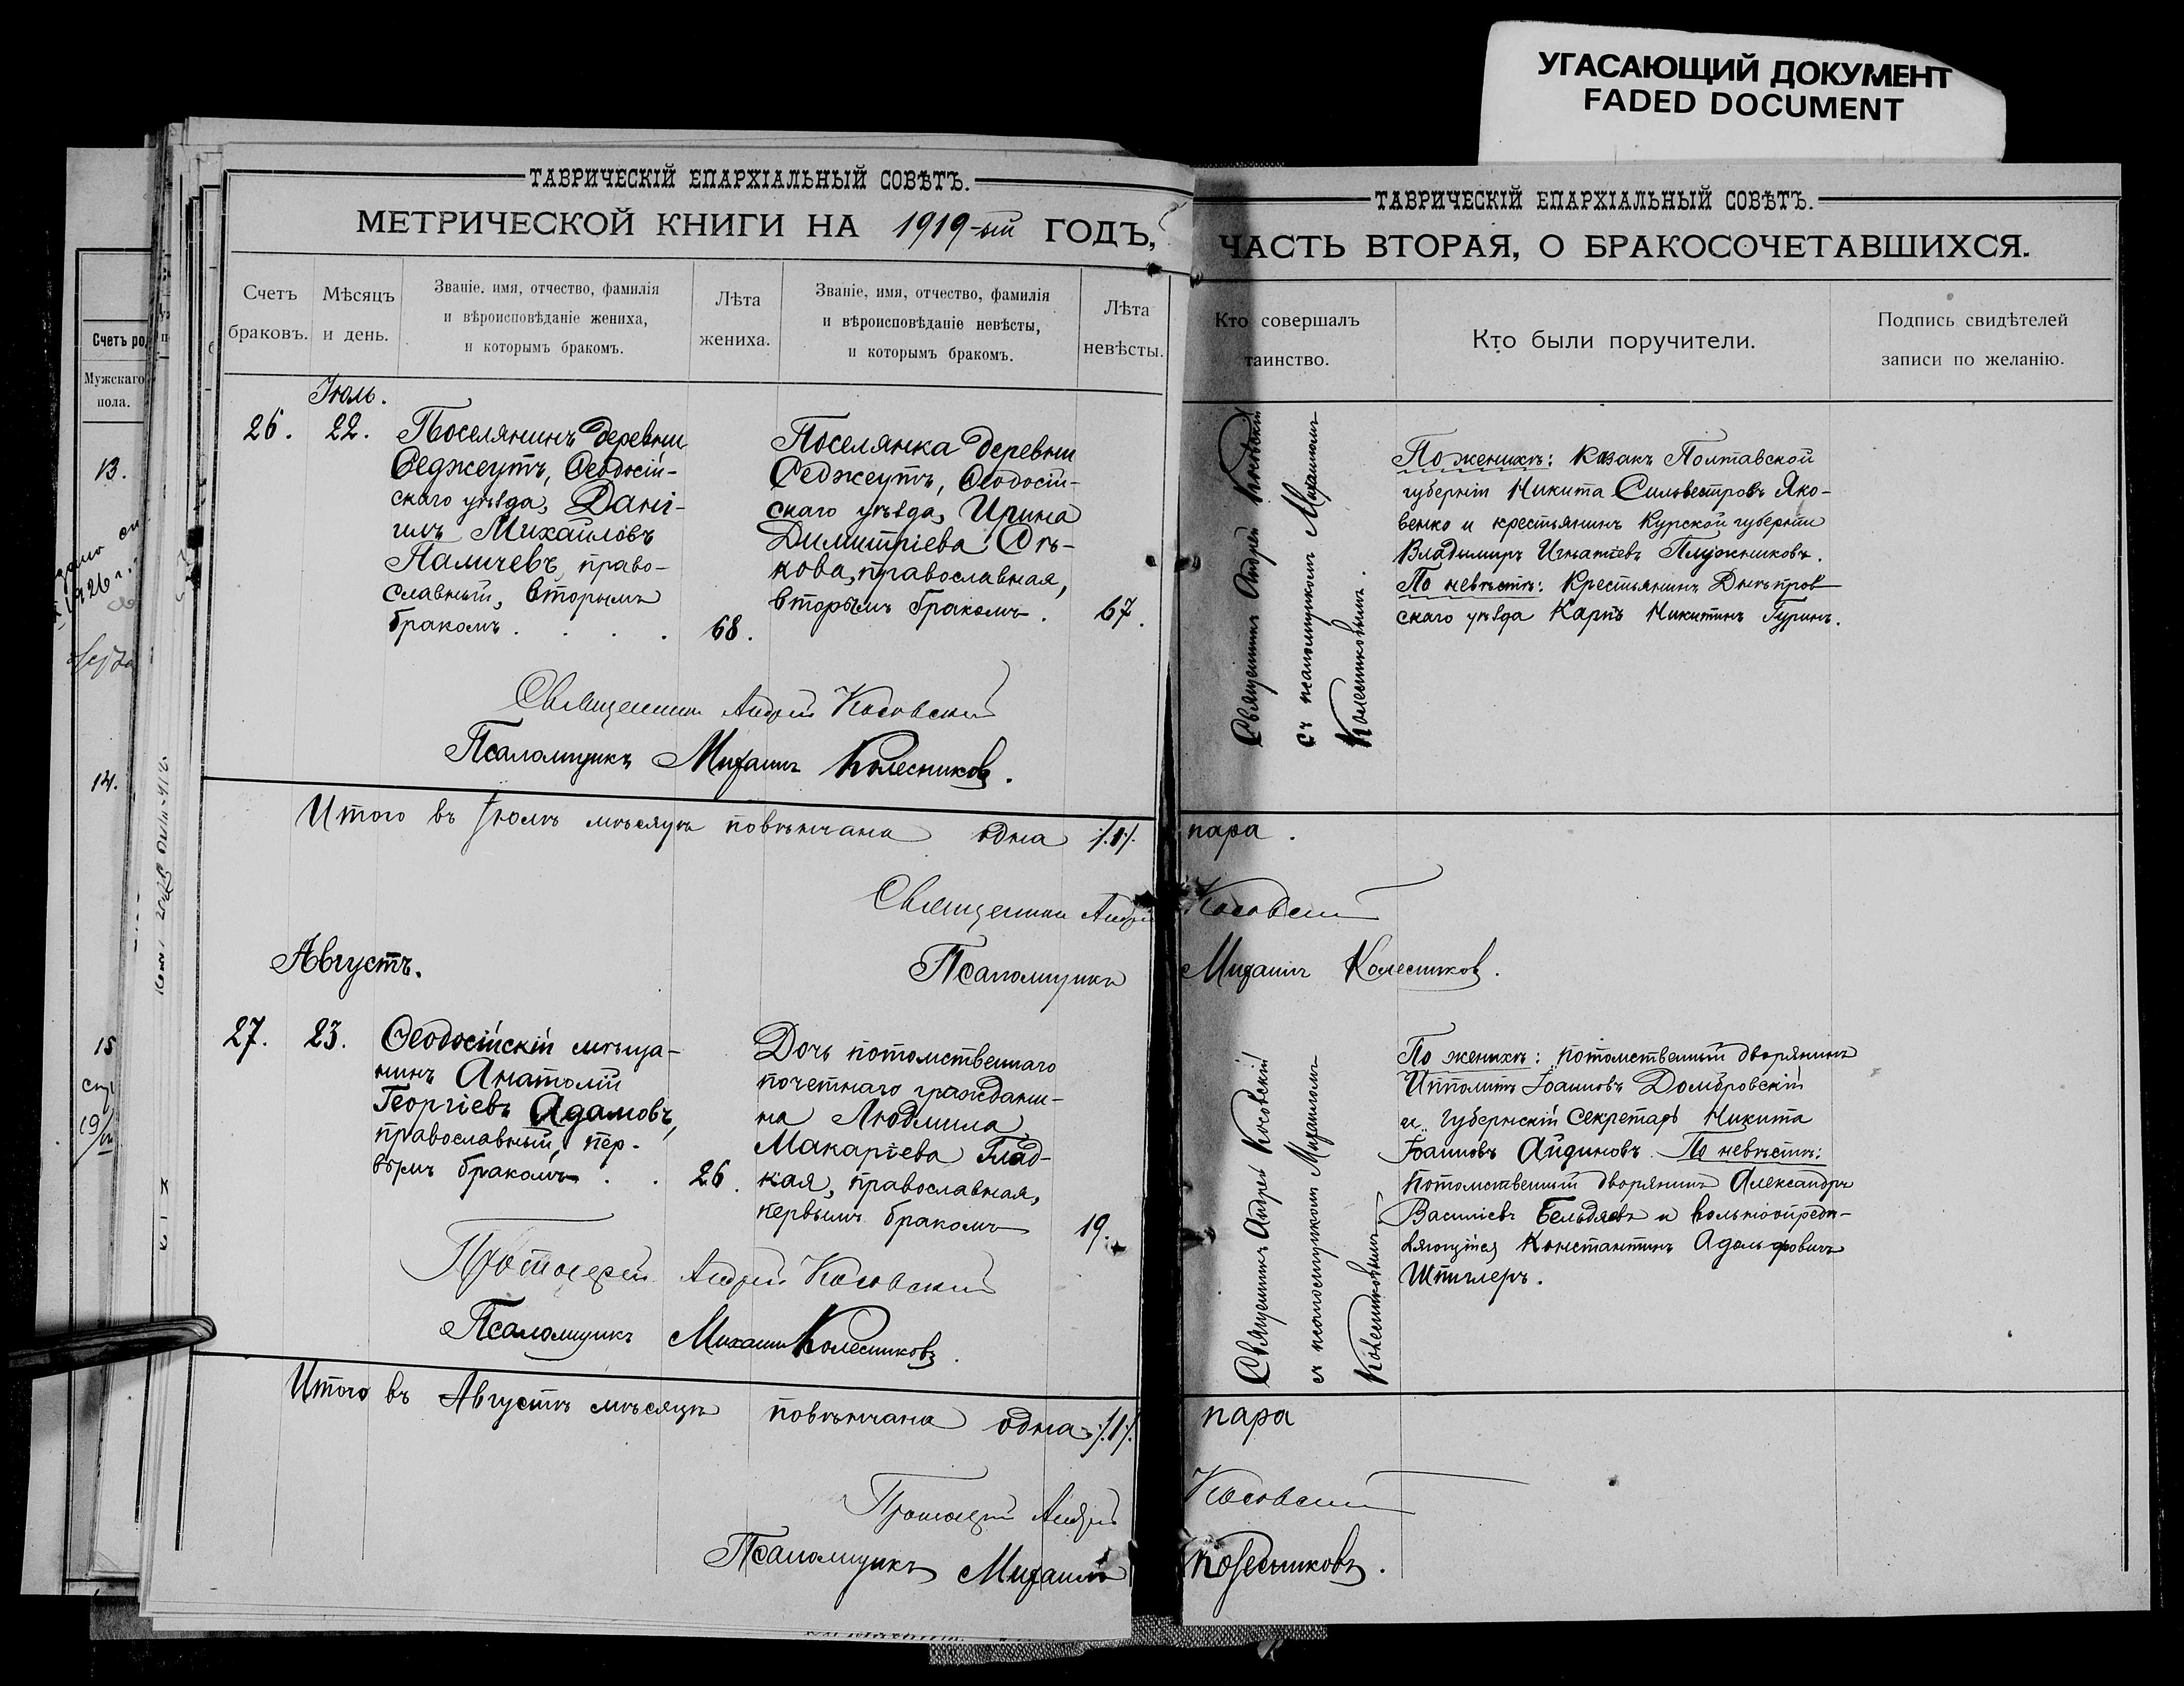 УГАСАЮЩИЙ ДОКУМЕНТ
FADED DOCUMENT
ТАВРИЧЕСКІЙ ЕПАРХІАЛЬНЫЙ СОВѢТЪ.
МЕТРИЧЕСКОЙ КНИГИ НА 1919-ый ГОДЪ,
Счетъ
браковъ.
Мѣсяцъ
и день.
Званіе, имя, отчество, фамилія
и вѣроисповѣданіе жениха,
и которымъ бракомъ.
Лѣта
жениха.
Званіе, имя, отчество, фамилія
и вѣроисповѣданіе невѣсты,
и которымъ бракомъ.
Лѣта
невѣсты.
Іюль.
26.
22.
Поселянинъ деревни
Седжеутъ, Ѳеодосій-
скаго уѣзда, Дані-
илъ Михаиловъ
Паличевъ, право-
славный, вторымъ
бракомъ . . . .
68.
Поселянка деревни
Седжеутъ, Ѳеодосій-
скаго уѣзда, Ирина
Димитріева
кова, православная,
вторымъ бракомъ.
67.
Священникъ Андрей Косовский
Псаломщикъ Михаилъ Колесниковъ.
Итого въ Іюлѣ мѣсяцѣ повѣнчана одна /.1/.
Священникъ Андрей
Августъ.
Псаломщикъ
27.
23.
Ѳеодосійскій мѣща-
нинъ Анатолій
Георгіевъ Адамовъ,
православный, пер-
вымъ бракомъ . .
26.
Дочь потомственнаго
почетнаго граждани-
на Людмила
Макаріева Глад-
кая, православная,
первымъ бракомъ
19.
Протоіерей Андрей Косовский
Псаломщикъ Михаилъ Колесниковъ.
Итого въ Августѣ мѣсяцѣ повѣнчана одна /.1/.
Протоіерей Андрей
Псаломщикъ Михаилъ
ТАВРИЧЕСКІЙ ЕПАРХІАЛЬНЫЙ СОВѢТЪ.
ЧАСТЬ ВТОРАЯ, О БРАКОСОЧЕТАВШИХСЯ.
Кто совершалъ
таинство.
Кто были поручители.
Подпись свидѣтелей
записи по желанію.
Священникъ Андрей Косовскій
съ псаломщикомъ Михаиломъ
Колесниковымъ.
По женихѣ: казакъ Полтавской
губерніи Никита Сильвестровъ Яко-
венко и крестьянинъ Курской губерніи
Владимиръ Игнатіевъ Плужниковъ.
По невѣстѣ: Крестьянинъ Днѣпров
скаго уѣзда Карпъ Никитинъ Гуринъ.
пара.
Косовский
Михаилъ Колесников.
Священникъ Андрей Косовскій
съ псаломщикомъ Михаиломъ
Колесниковымъ
По женихѣ: потомственный дворянинъ
Ипполитъ Іоанновъ Домбровскій
и губернскій секретарь Никита
Іоанновъ Айдиновъ. По невѣстѣ:
Потомственный дворянинъ Александръ
Василіевъ Бельдяевъ и вольноопредѣ-
ляющійся Константинъ Адольфовичъ
Штиглеръ.
пара
Косовский
Колесниковъ.
Счетъ ро
Мужскаго
пола.
13.
14.
15